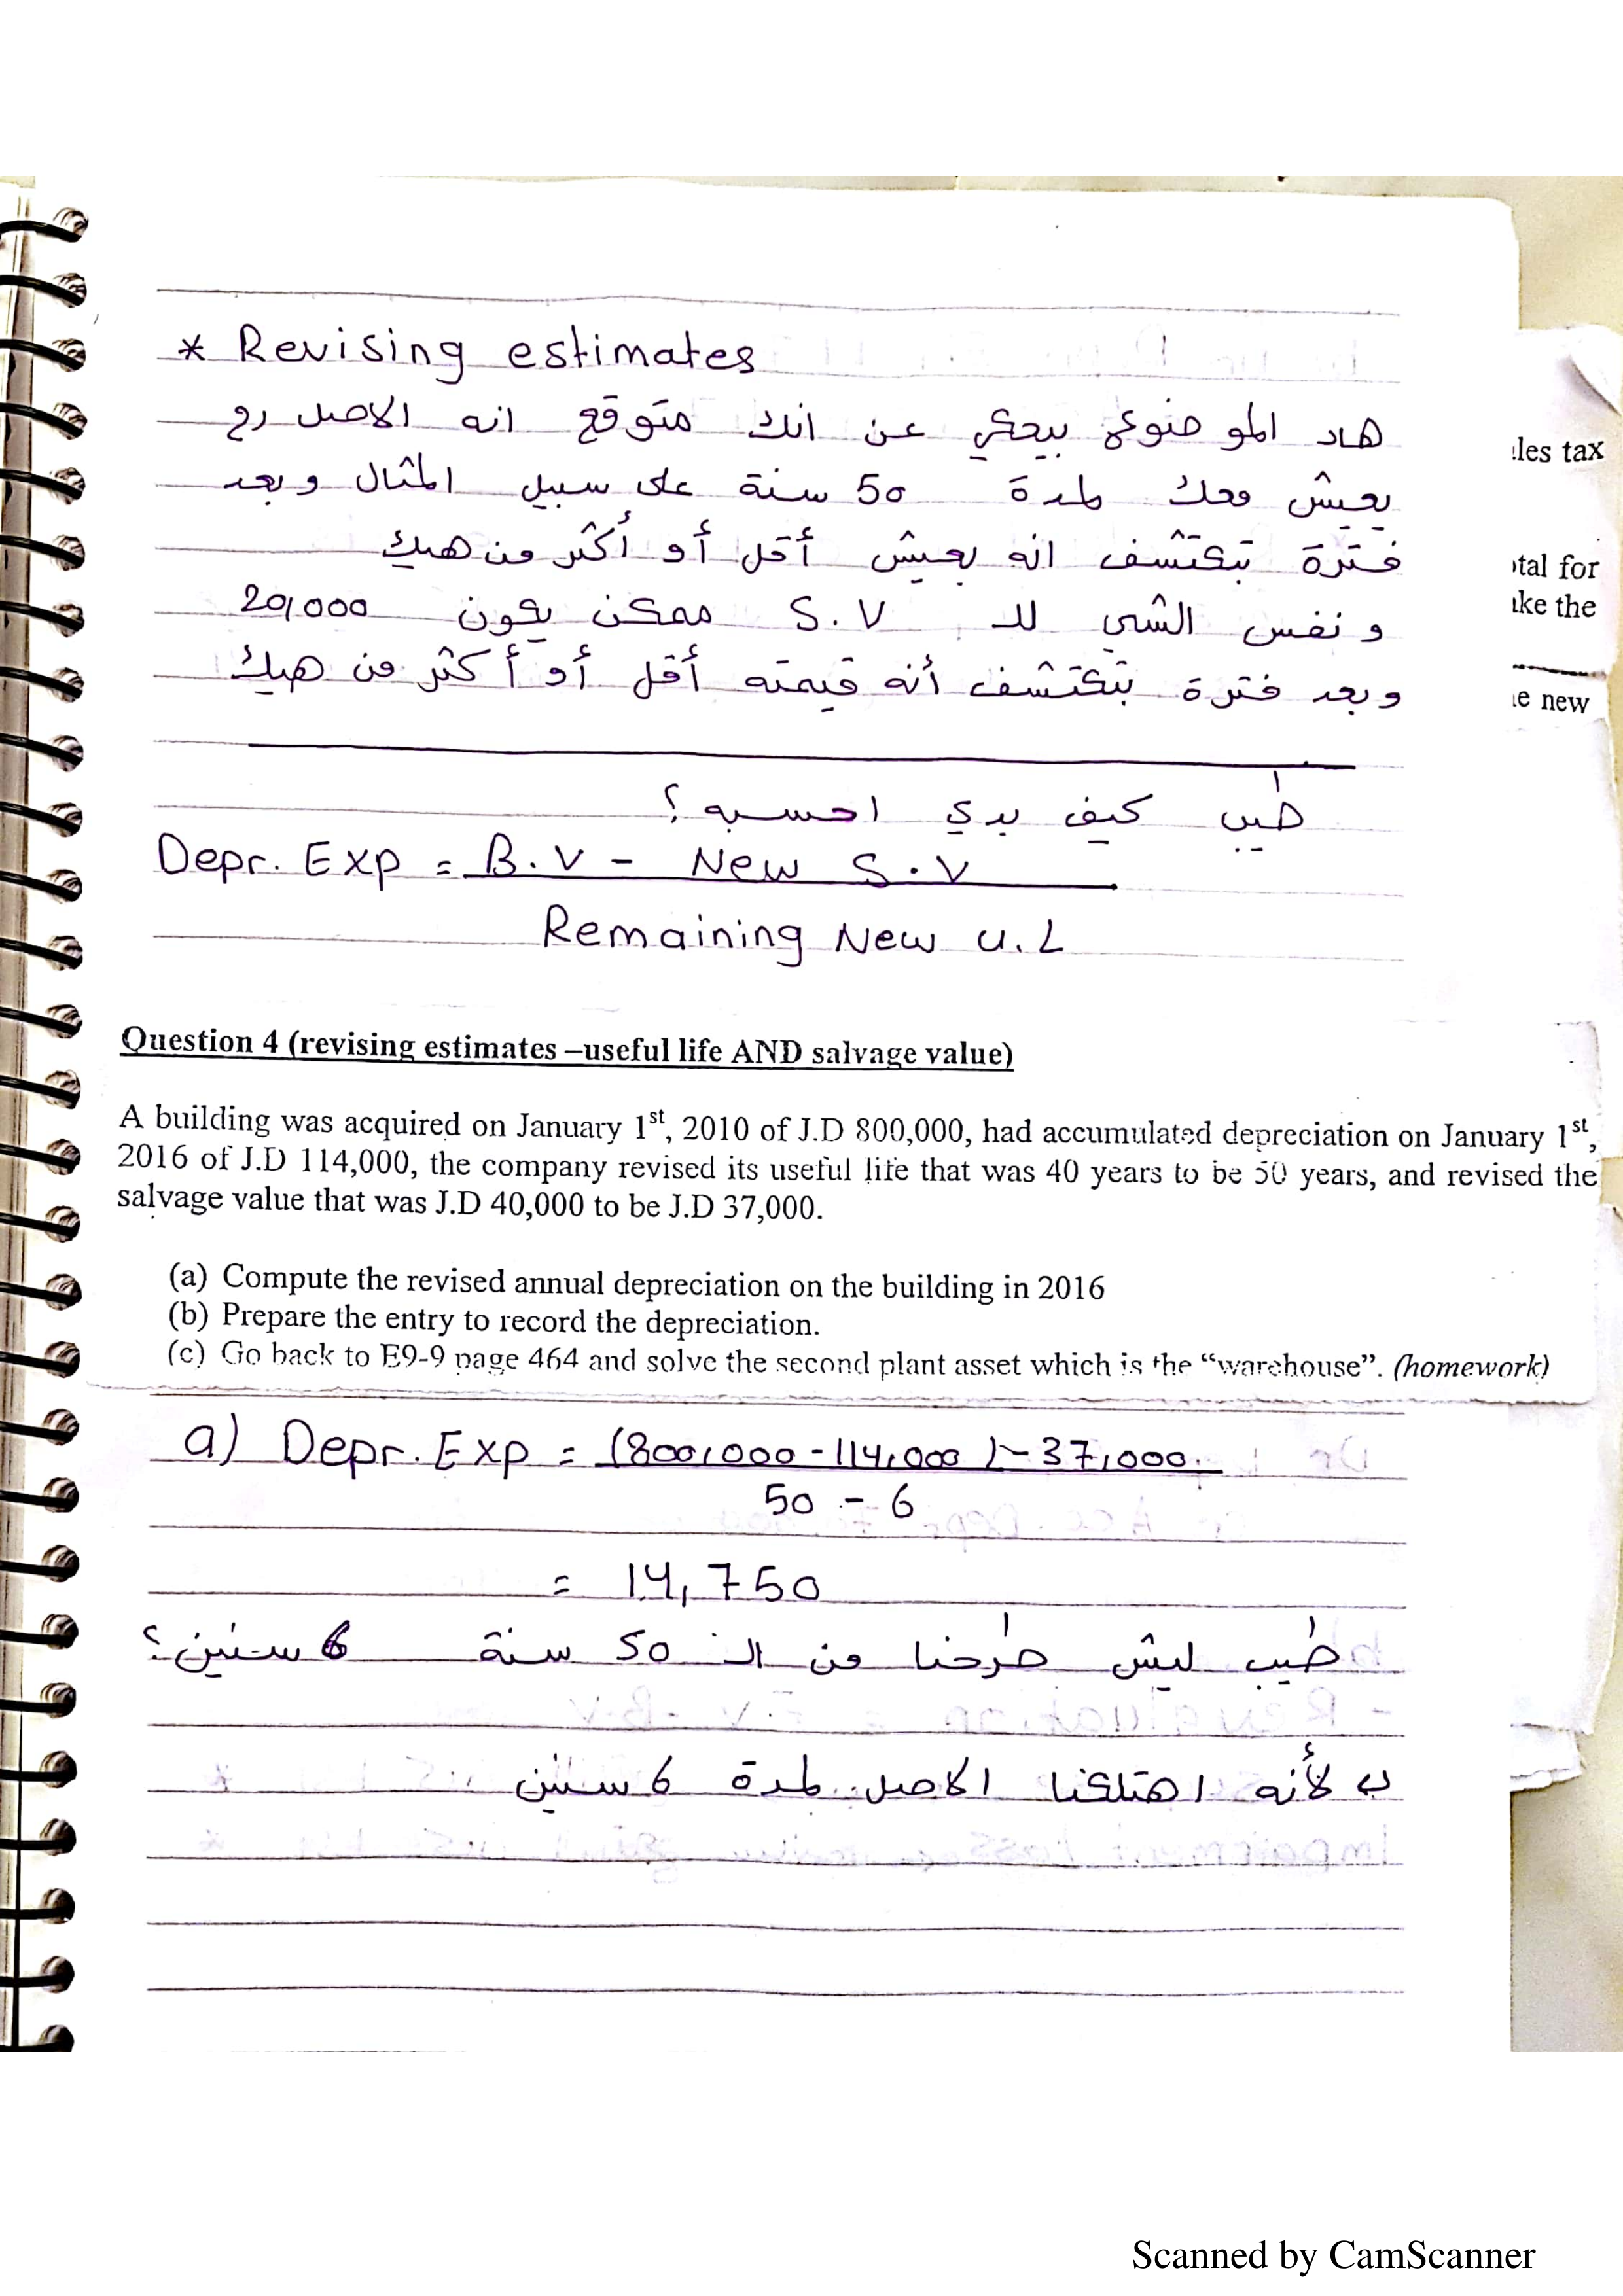 * Revising estimates
هاد الموضوع بيحكي عن انك متوقع انه الاصل رح
يعيش معك لمدة 50 سنة على سبيل المثال وبعد
فترة تكتشف انه بعيش أقل أو أكثر من هيك
و نفس الشي للـ S.V ممكن يكون 20,000
وبعد فترة بتكتشف أنه قيمته أقل أو أكثر من هيك
les tax
tal for
ke the
e new
طيب كيف بدي احسبه؟
Depr. Exp = B.V - New S.V
Remaining New U.L
Question 4 (revising estimates –useful life AND salvage value)
A building was acquired on January 1st, 2010 of J.D 800,000, had accumulated depreciation on January 1st,
2016 of J.D 114,000, the company revised its useful life that was 40 years to be 50 years, and revised the
salvage value that was J.D 40,000 to be J.D 37,000.
(a) Compute the revised annual depreciation on the building in 2016
(b) Prepare the entry to record the depreciation.
(c) Go back to E9-9 page 464 and solve the second plant asset which is the “warehouse”. (homework)
a) Depr. Exp = (800,000 - 114,000) - 37,000
50 - 6
= 14,750
طيب ليش طرحنا من الـ 50 سنة 6 سنين؟
لأنه اهتلكنا الاصل لمدة 6 سنين
Scanned by CamScanner